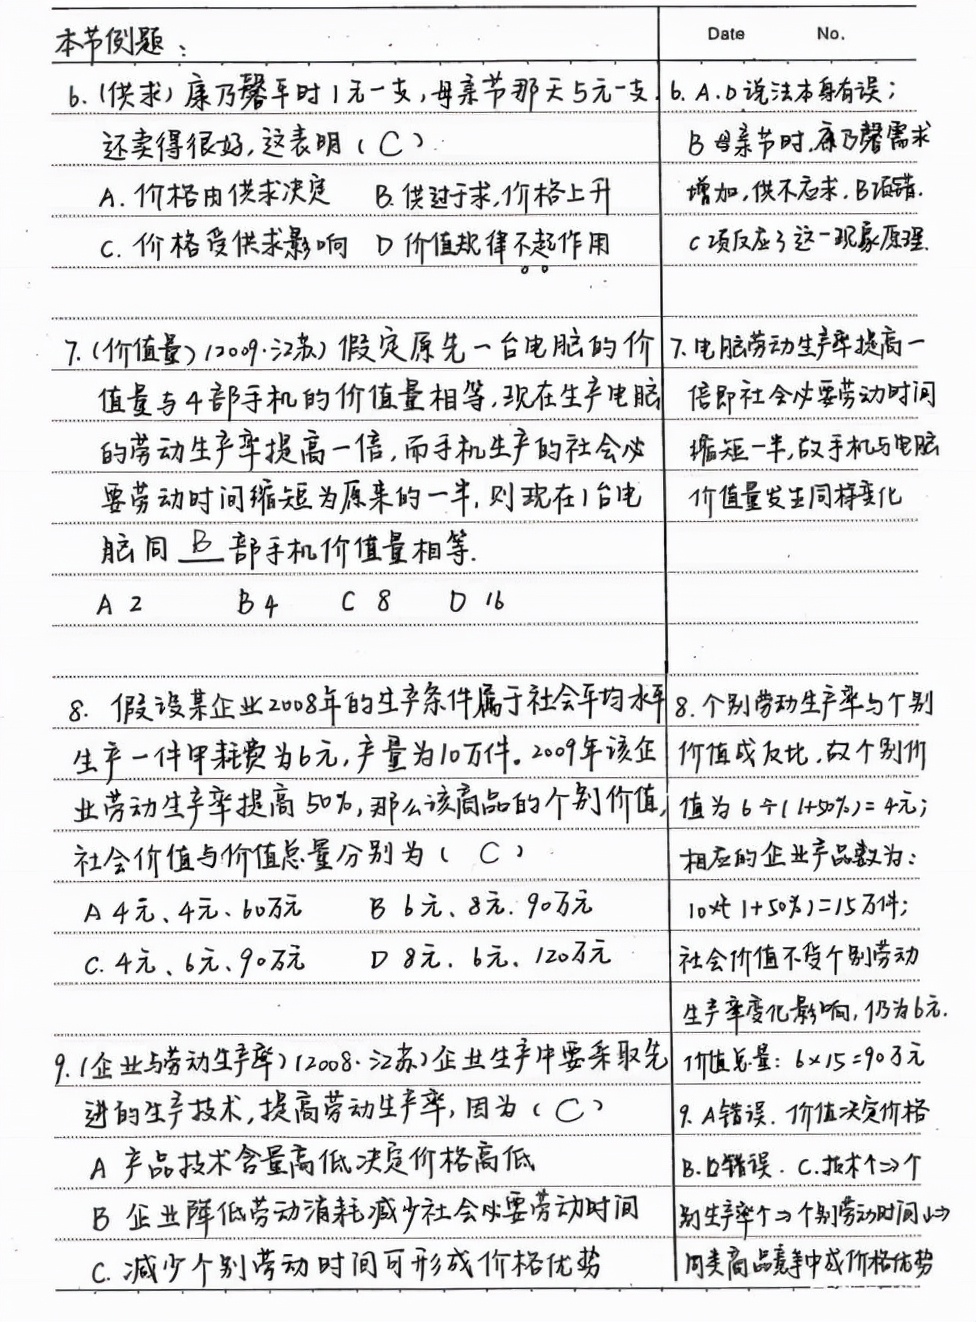 本节例题:
Date No.
6.(供求)康乃馨平时1元一支,母亲节那天5元一支
还卖得很好,这表明(C)
A.价格由供求决定 B.供过于求,价格上升
C.价格受供求影响 D 价值规律不起作用
6.A.D说法本身有误;
B 母亲节时,康乃馨需求
增加,供不应求,B项错.
C项反应了这一现象原理.
7.(价值量)(2009·江苏)假定原先一台电脑的价
值量与4部手机的价值量相等,现在生产电脑
的劳动生产率提高一倍,而手机生产的社会必
要劳动时间缩短为原来的一半,则现在1台电
脑同 B 部手机价值量相等.
A 2 B 4 C 8 D 16
7.电脑劳动生产率提高一
倍即社会必要劳动时间
缩短一半,故手机与电脑
价值量发生同样变化
8. 假设某企业2008年的生产条件属于社会平均水平
生产一件甲耗费为6元,产量为10万件。2009年该企
业劳动生产率提高50%,那么该商品的个别价值,
社会价值与价值总量分别为(C)
A 4元、4元、60万元 B 6元、8元.90万元
C.4元、6元、90万元 D 8元.6元、120万元
8.个别劳动生产率与个别
价值成反比,故个别价
值为6÷(1+50%)=4元;
相应的企业产品数为:
10×(1+50%)=15万件;
社会价值不受个别劳动
生产率变化影响,仍为6元.
价值总量:6×15=90万元
9.(企业与劳动生产率)(2008·江苏)企业生产中要采取先
进的生产技术,提高劳动生产率,因为(C)
A 产品技术含量高低决定价格高低
B 企业降低劳动消耗减少社会必要劳动时间
C.减少个别劳动时间可形成价格优势
9.A错误.价值决定价格
B.D错误.C.技术↑⇒个
别生产率↑⇒个别劳动时间↓⇒
同类商品竞争中成价格优势